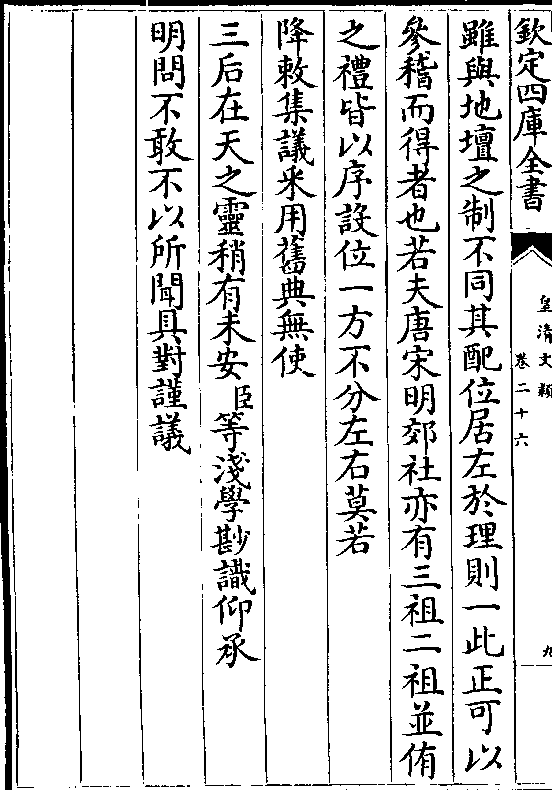 欽定四庫全書
皇清文穎
卷二十六
九
雖與地壇之制不同其配位居左於理則一此正可以
參稽而得者也若夫唐宋明郊社亦有三祖二祖並侑
之禮皆以序設位一方不分左右莫若
降敕集議采用舊典無使
三后在天之靈稍有未安臣等淺學尠識仰承
明問不敢不以所聞具對謹議